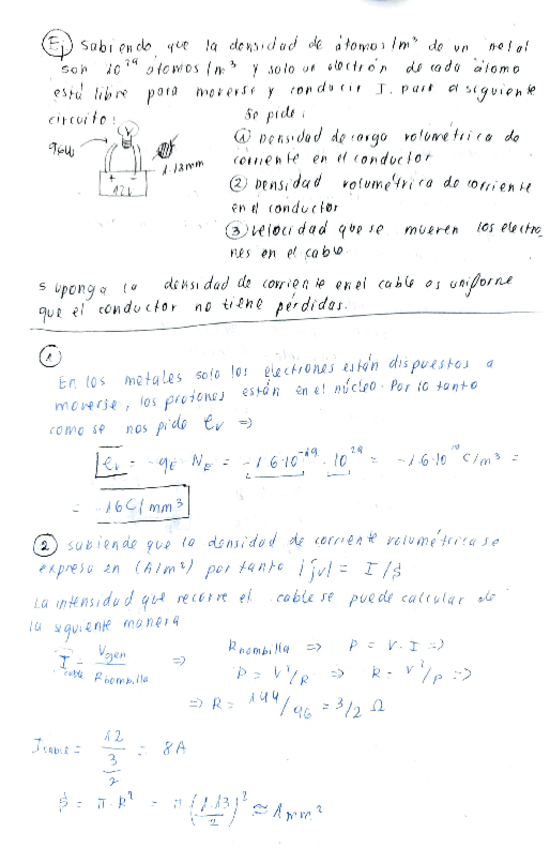 Ej Sabiendo que la densidad de átomos/m³ de un metal
son 10²⁹ átomos/m³ y solo un electrón de cada átomo
está libre para moverse y conducir I. para el siguiente
circuito:
96W
1.13mm
+ -
12V
Se pide:
① Densidad de carga volumétrica de
corriente en el conductor
② Densidad volumétrica de corriente
en el conductor
③ velocidad que se mueven los electro-
nes en el cable
Suponga la densidad de corriente en el cable es uniforme
que el conductor no tiene pérdidas.
①
En los metales solo los electrones están dispuestos a
moverse, los protones están en el núcleo. Por lo tanto
como se nos pide ρv =>
ρv = -qE · NE = -1.6·10⁻¹⁹ · 10²⁹ = -1.6·10¹⁰ C/m³ =
= -16C/mm³
② Sabiende que la densidad de corriente volumétrica se
expresa en (A/m²) por tanto |Jv| = I/S
La intensidad que recorre el cable se puede calcular de
la siguiente manera
I cable = Vgen / Rbombilla => Rbombilla => P = V·I =>
P = V²/R => R = V²/P =>
=> R = 144/96 = 3/2 Ω
Icable = 12 / (3/2) = 8A
S = π·R² = π(1.13/2)² ≈ 1mm²